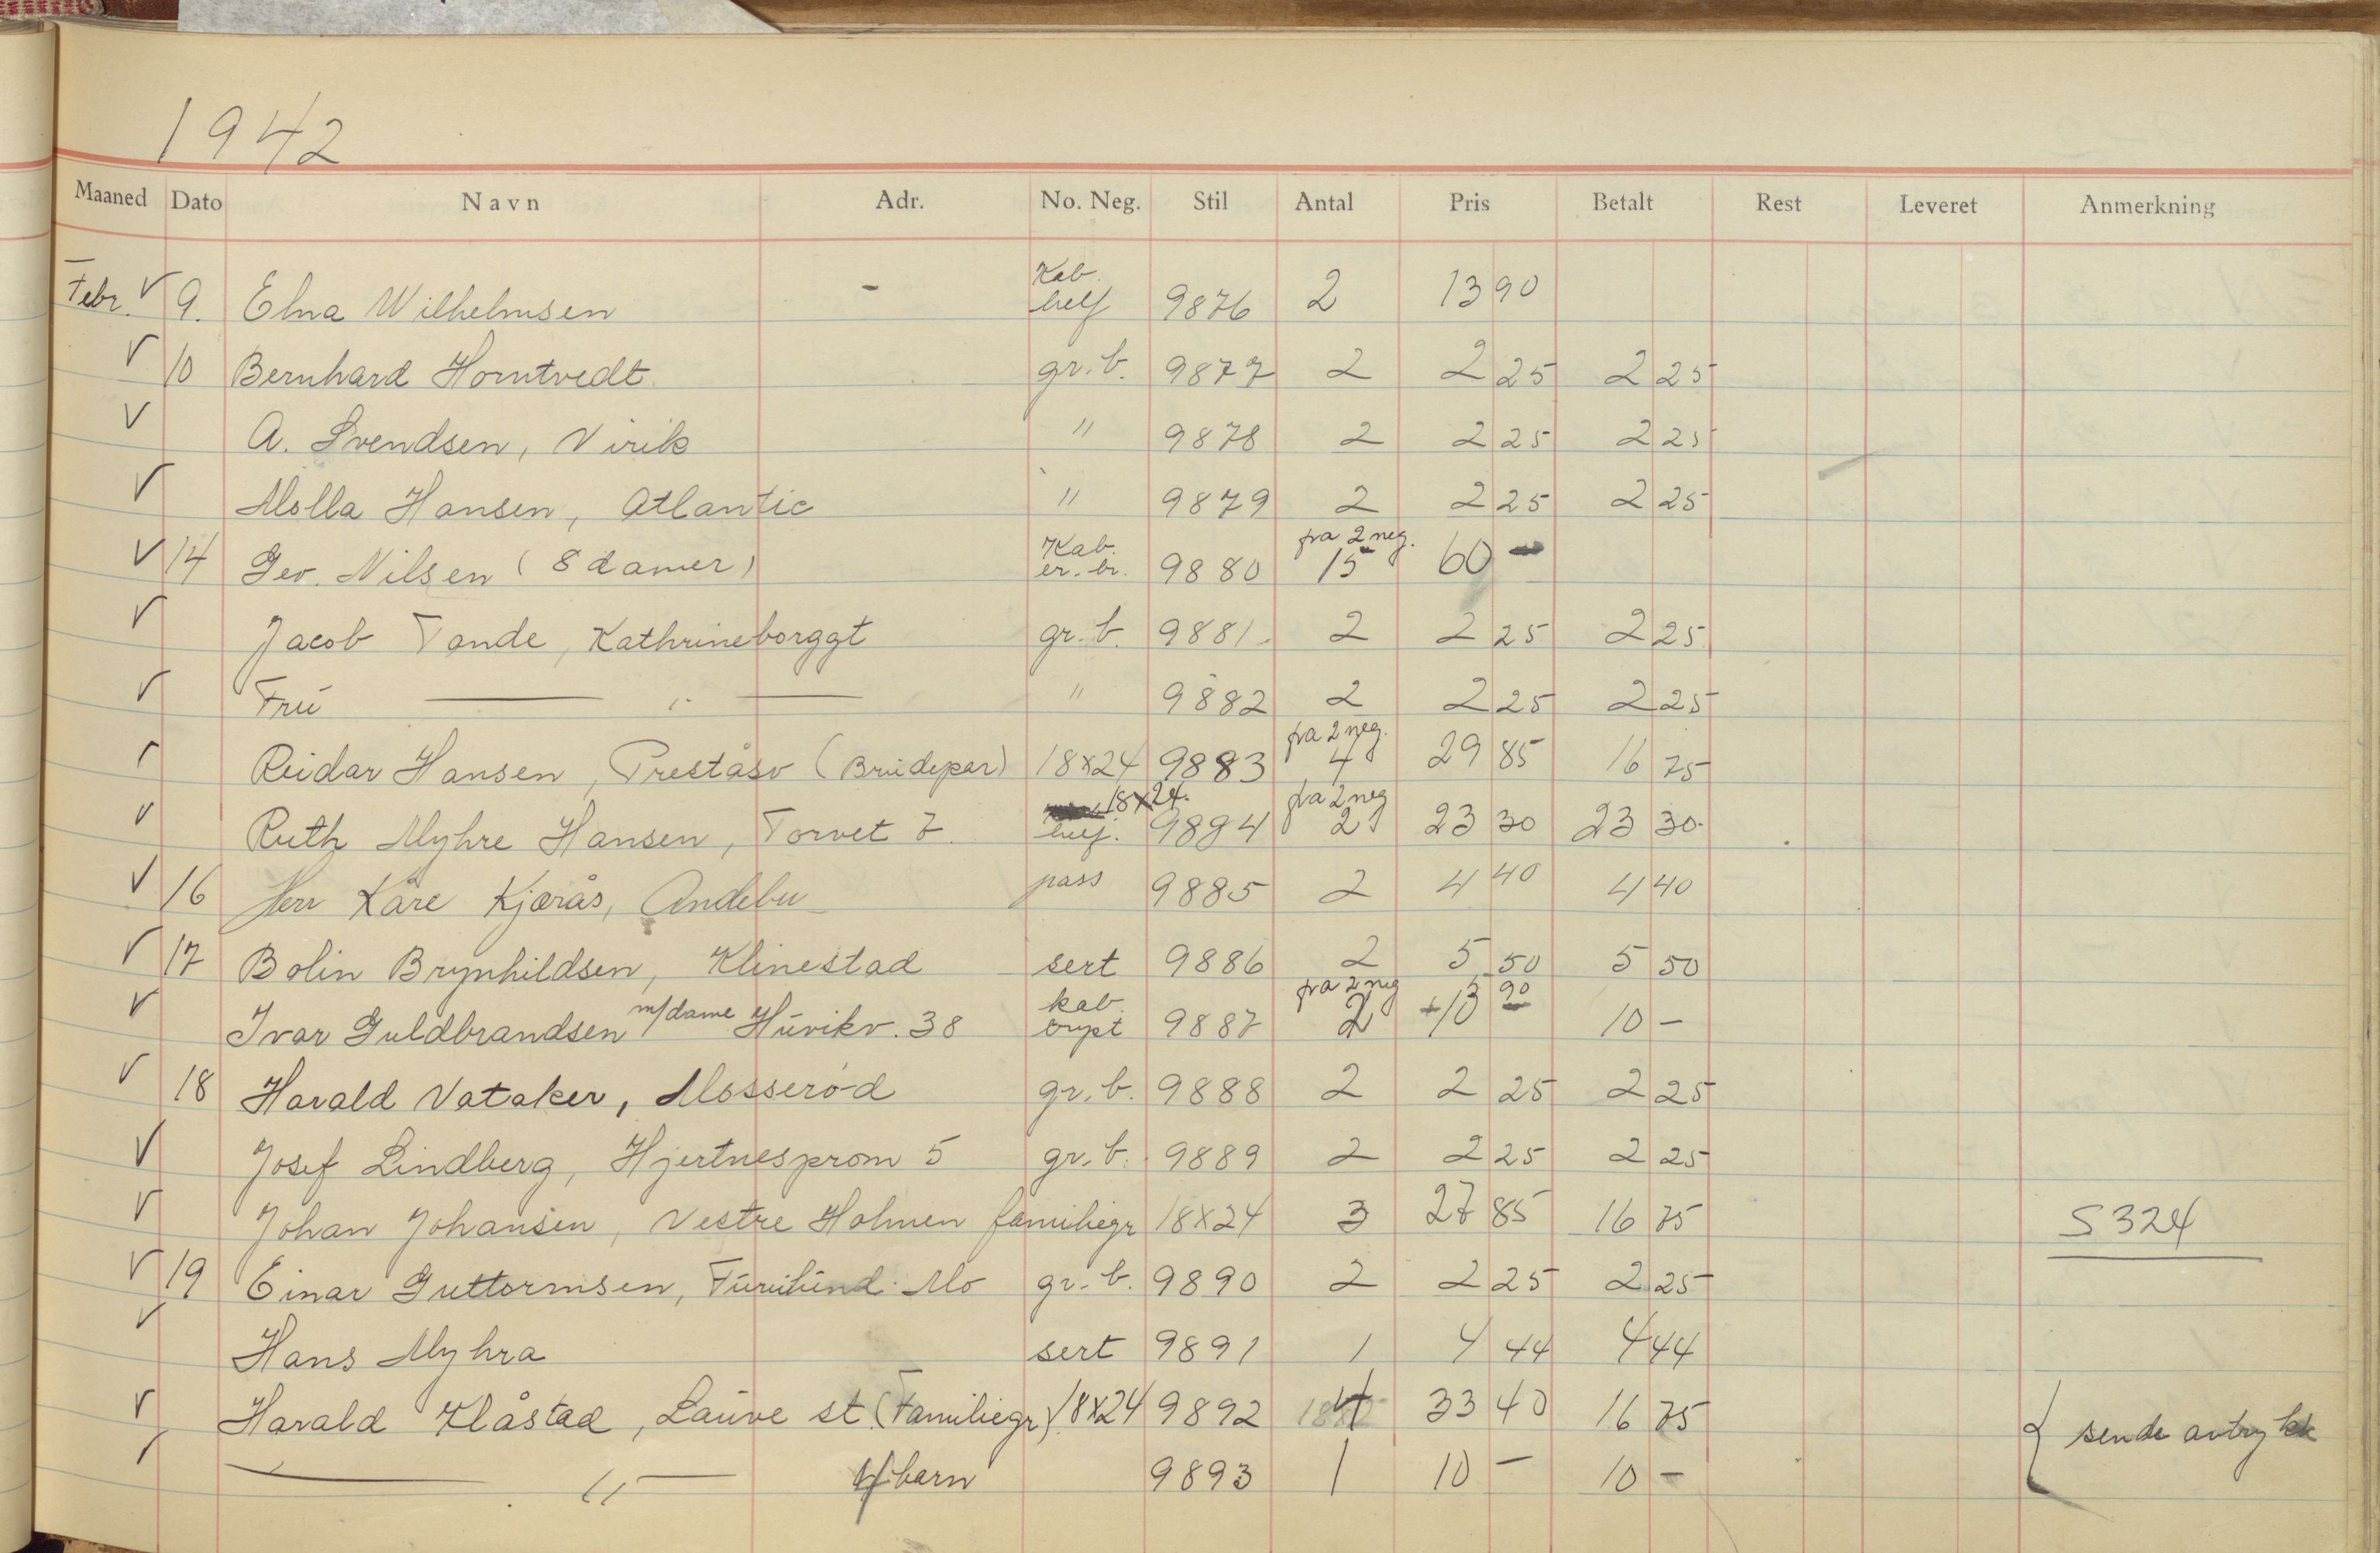 1942
Maaned Dato Navn Adr. No. Neg. Stil Antal Pris Betalt Rest Leveret Anmerkning
Kab.
Febr. V 9. Elna Wilhelmsen - helf 9876 2 13 90
V 10 Bernhard Horntvedt gr. b. 9877 2 2 25 2 25
V A. Svendsen, Virik " 9878 2 2 25 2 25
V Molla Hansen, Atlantic " 9879 2 2 25 2 25
Kab. fra 2 neg.
V 14 Gev. Nilsen (8 damer) er. br. 9880 15 60 -
V Jacob Tande, Kathrineborggt gr. b. 9881 2 2 25 2 25
V Frü — " — " 9882 2 2 25 2 25
fra 2 neg.
Reidar Hansen, Preståsv (Brüdepar) 18x24 9883 4 29 85 16 75
18x24. fra 2 neg
V Ruth Myhre Hansen, Torvet 7. helf. 9884 2 23 30 23 30.
V 16 Herr Kåre Kjærås, Andebu pass 9885 2 4 40 4 40
V 17 Bolin Brynhildsen, Klinestad sert 9886 2 5 50 5 50
m/dame kab. fra 2 neg 90
V Ivar Guldbrandsen Hüvikv. 38 brpt 9887 2 13 10 -
V 18 Harald Vataker, Mosserød gr. b. 9888 2 2 25 2 25
V Josef Lindberg, Hjertnesprom 5 gr. b. 9889 2 2 25 2 25
V Johan Johansen, Vestre Holmen familiegr 18x24 3 27 85 16 75 S 324
V 19 Einar Guttormsen, Fürülünd Mo gr. b. 9890 2 2 25 2 25
V Hans Myhra sert 9891 1 4 44 4 44
V Harald Klåstad, Laüve st. (Familiegr) 18x24 9892 4 33 40 16 75
{ sende avtrykk
— " — barn 9893 1 10 - 10 -